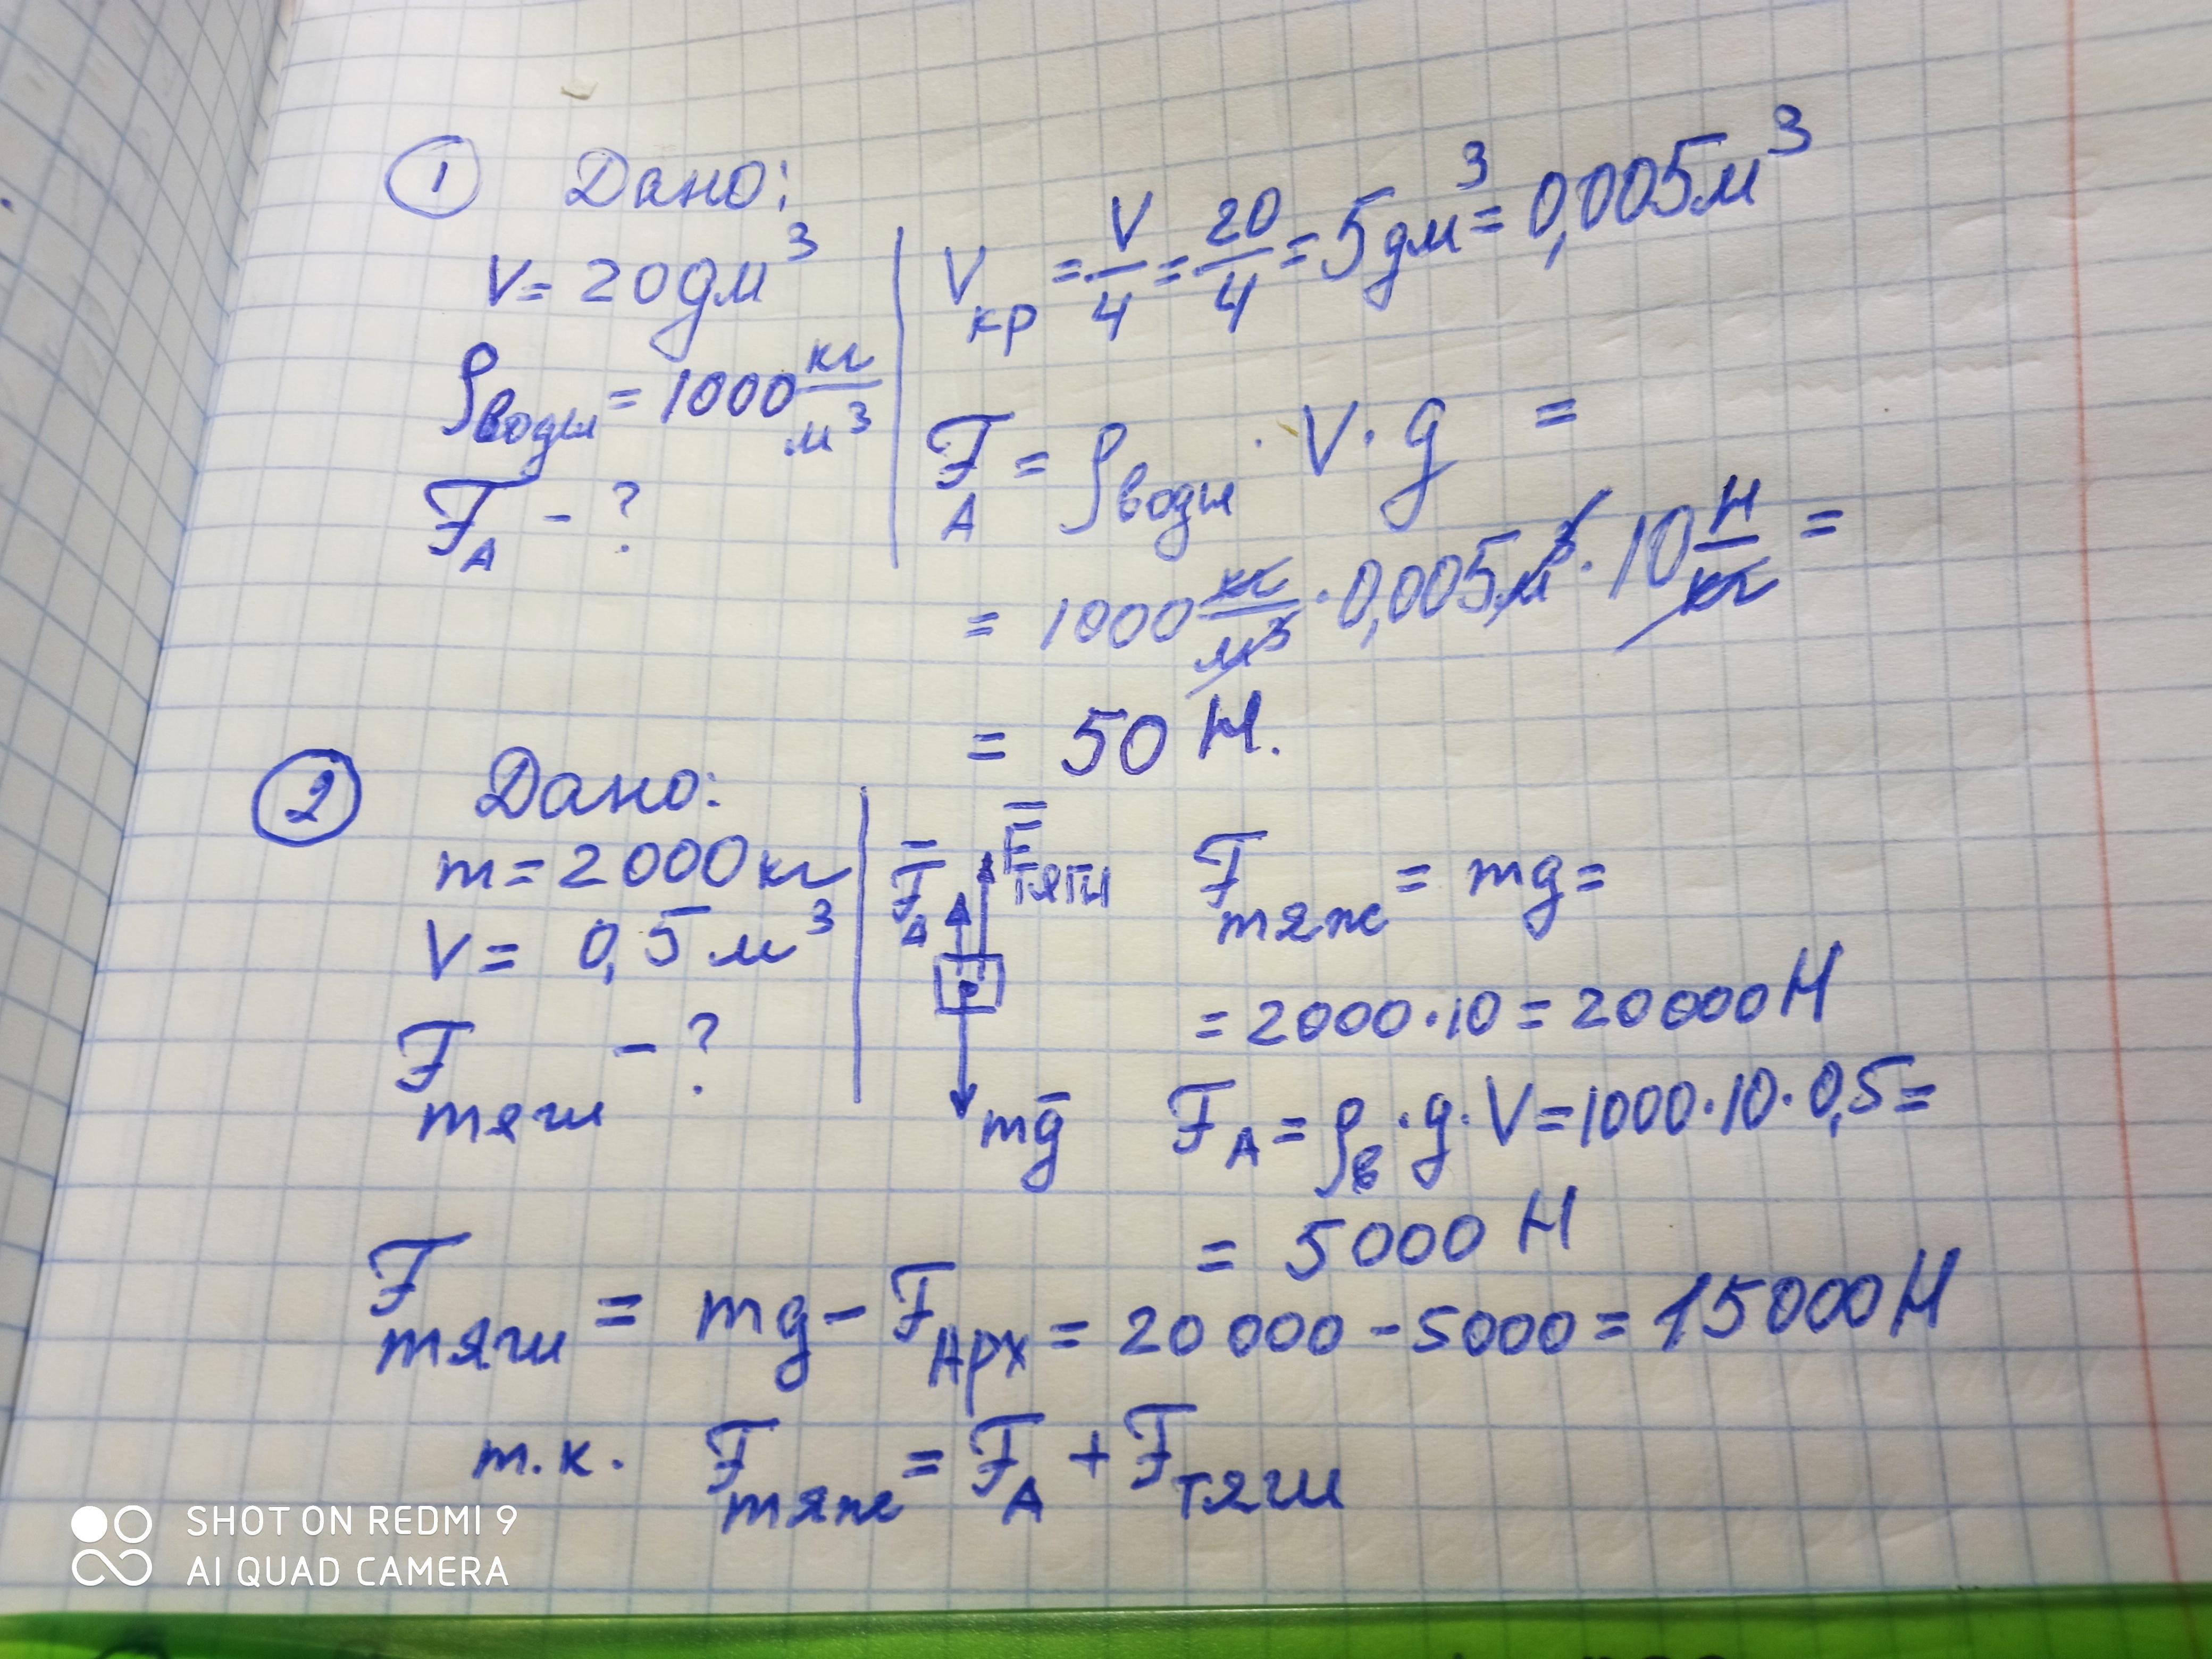 ① Дано:
V = 20 дм³
ρводы = 1000 кг/м³
F_A - ?
V_кр = V/4 = 20/4 = 5 дм³ = 0,005 м³
F_A = ρводы · V · g =
= 1000 кг/м³ · 0,005 м³ · 10 Н/кг =
= 50 Н.
② Дано:
m = 2000 кг
V = 0,5 м³
F тяги - ?
F̅_A
F̅ тяги
mg̅
F тяж = mg =
= 2000 · 10 = 20000 Н
F_A = ρ_в · g · V = 1000 · 10 · 0,5 =
= 5000 Н
F тяги = mg - F_Арх = 20 000 - 5000 = 15000 Н
т.к. F тяж = F_A + F тяги
SHOT ON REDMI 9
AI QUAD CAMERA